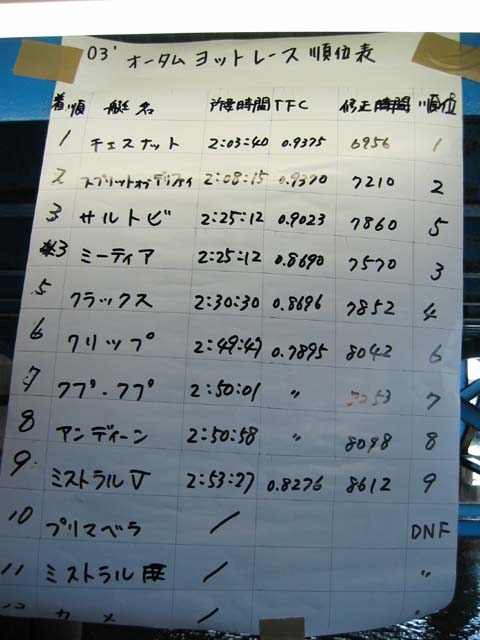 03' オータム ヨットレース 順位表
着順 艇名 所要時間 TFC 修正時間 順位
1 チェスナット 2:03:40 0.9375 6956 1
2 スプリットオブデリティ 2:08:15 0.9370 7210 2
3 サルトビ 2:25:12 0.9023 7860 5
3 ミーティア 2:25:12 0.8690 7570 3
5 クラックス 2:30:30 0.8696 7852 4
6 クリップ 2:49:47 0.7895 8042 6
7 ププ・ププ 2:50:01 〃 53 7
8 アンディーン 2:50:58 〃 8098 8
9 ミストラルV 2:53:27 0.8276 8612 9
10 プリマベラ / DNF
11 ミストラル / 〃
12 カメ /